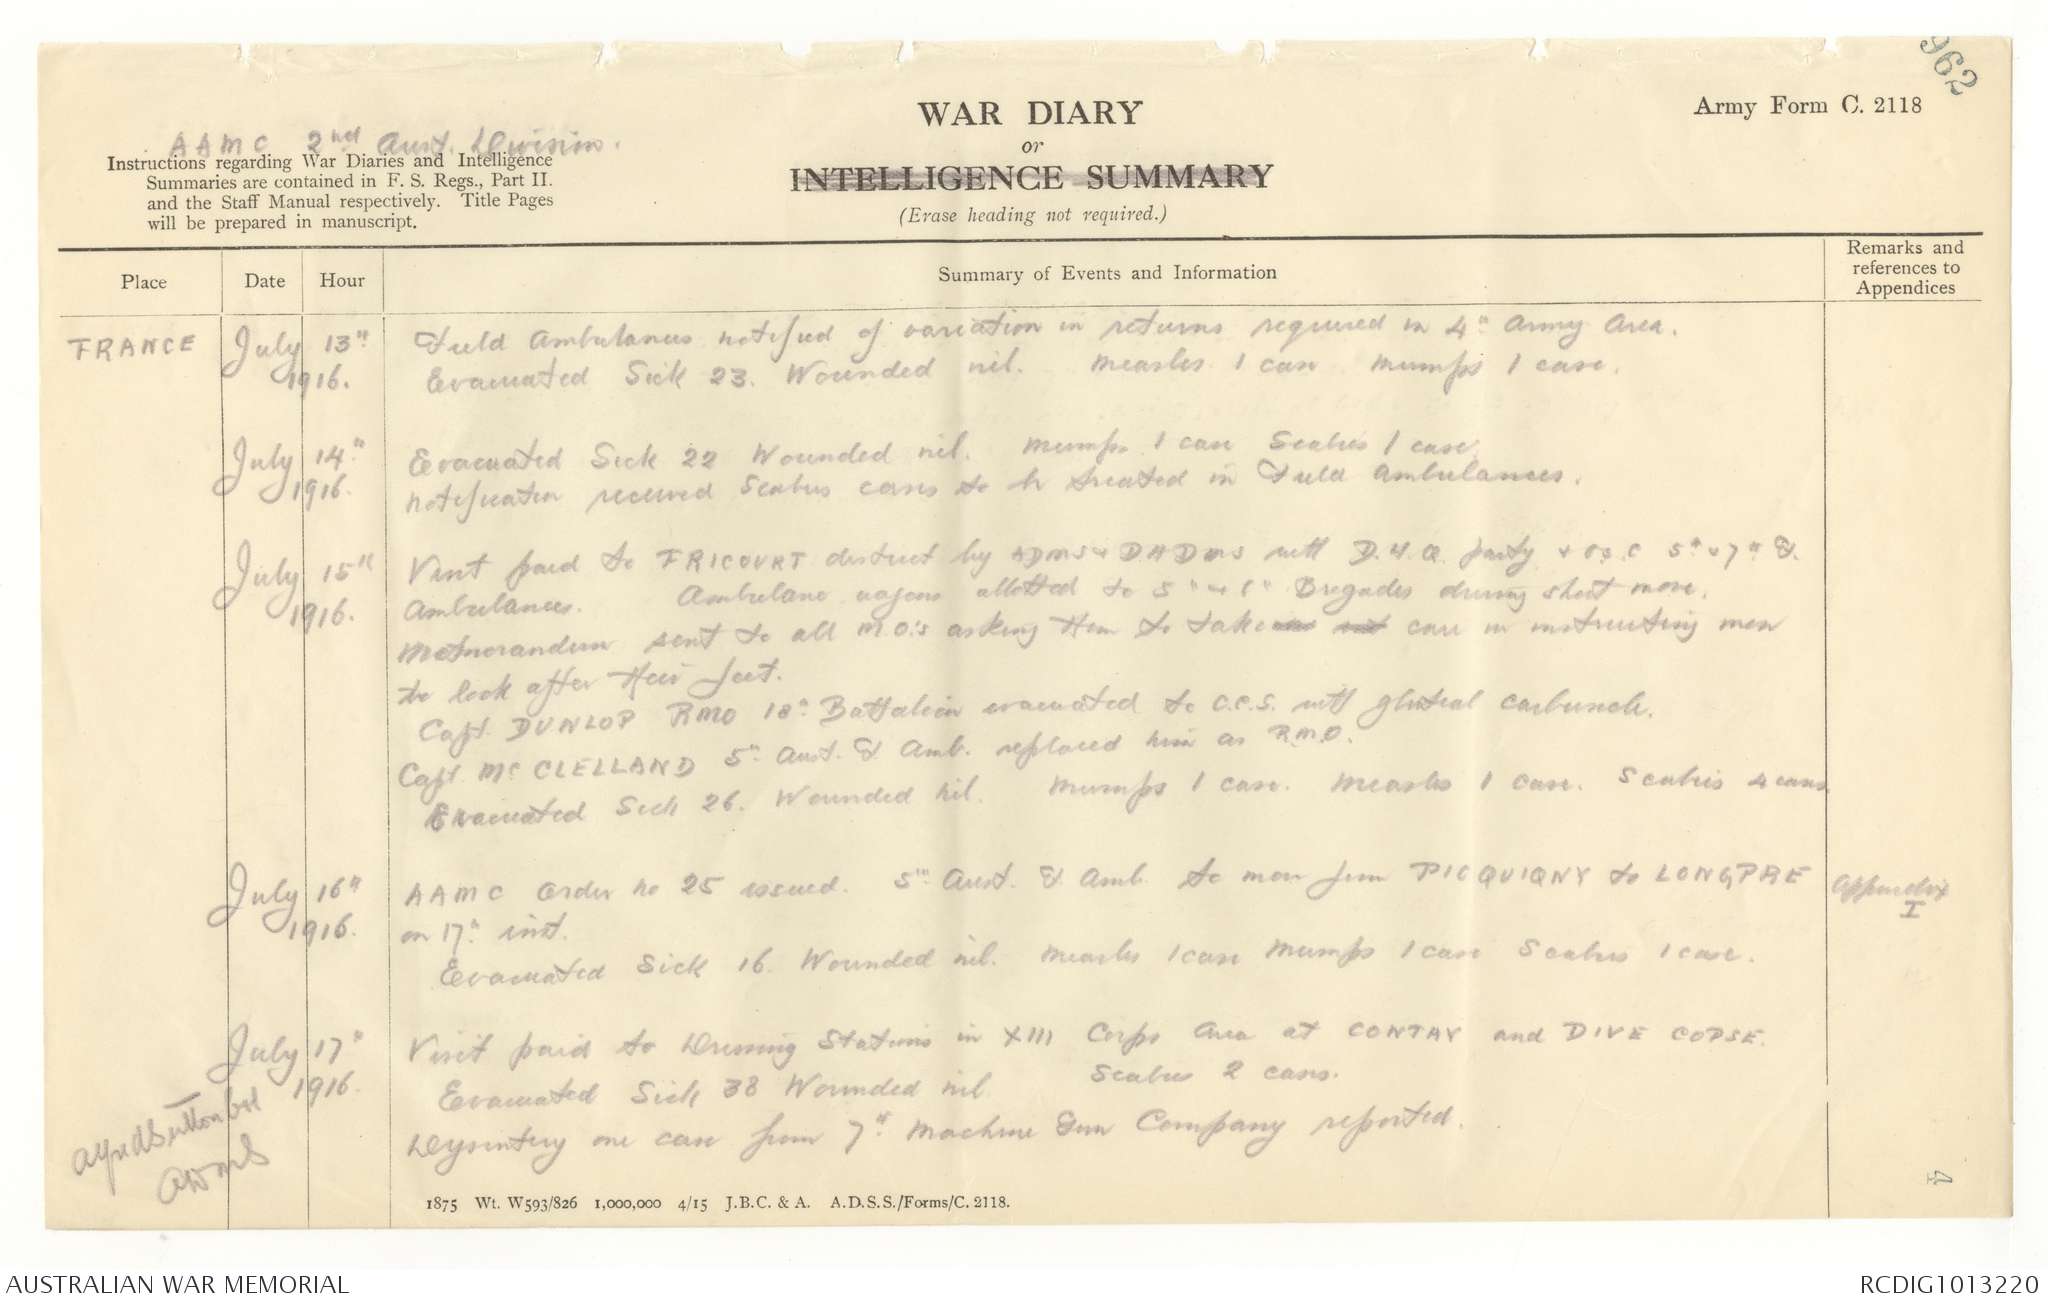 962
Army Form C. 2118
WAR DIARY
or
INTELLIGENCE SUMMARY
(Erase heading not required.)
AAMC 2nd Aust. Division.
Instructions regarding War Diaries and Intelligence
Summaries are contained in F. S. Regs., Part II.
and the Staff Manual respectively. Title Pages
will be prepared in manuscript.
Place Date Hour Summary of Events and Information Remarks and references to Appendices
FRANCE July 13th 1916. Field Ambulances notified of variation in returns required in 4th Army Area.
Evacuated Sick 23. Wounded nil. Measles 1 case Mumps 1 case.
July 14th 1916. Evacuated Sick 22 Wounded nil. Mumps 1 case Scabies 1 case.
Notification received Scabies cases to be treated in Field Ambulances.
July 15th 1916. Visit paid to FRICOURT district by ADMS & DADMS with D.H.Q. party & O's.C 5th & 7th F.
Ambulances. Ambulance wagons allotted to 5th & 6th Brigades during short move.
Memorandum sent to all M.O.'s asking them to take care in instructing men
to look after their feet.
Capt. DUNLOP RMO 18th Battalion evacuated to C.C.S. with gluteal carbuncle.
Capt. McCLELLAND 5th Aust. F. Amb. replaced him as R.M.O.
Evacuated Sick 26. Wounded nil. Mumps 1 case. Measles 1 case. Scabies 4 cases
July 16th 1916. AAMC Order no 25 issued. 5th Aust. F. Amb. to move from PICQUIGNY to LONGPRE Appendix I
on 17th inst.
Evacuated Sick 16. Wounded nil. Measles 1 case Mumps 1 case Scabies 1 case.
July 17th 1916. Visit paid to Dressing Stations in XIII Corps Area at CONTAY and DIVE COPSE.
Evacuated Sick 38 Wounded nil Scabies 2 cases.
Dysentery one case from 7th Machine Gun Company reported.
Alfred Sutton Col
ADMS
4
1875 Wt. W593/826 1,000,000 4/15 J.B.C. & A. A.D.S.S./Forms/C. 2118.
AUSTRALIAN WAR MEMORIAL
RCDIG1013220